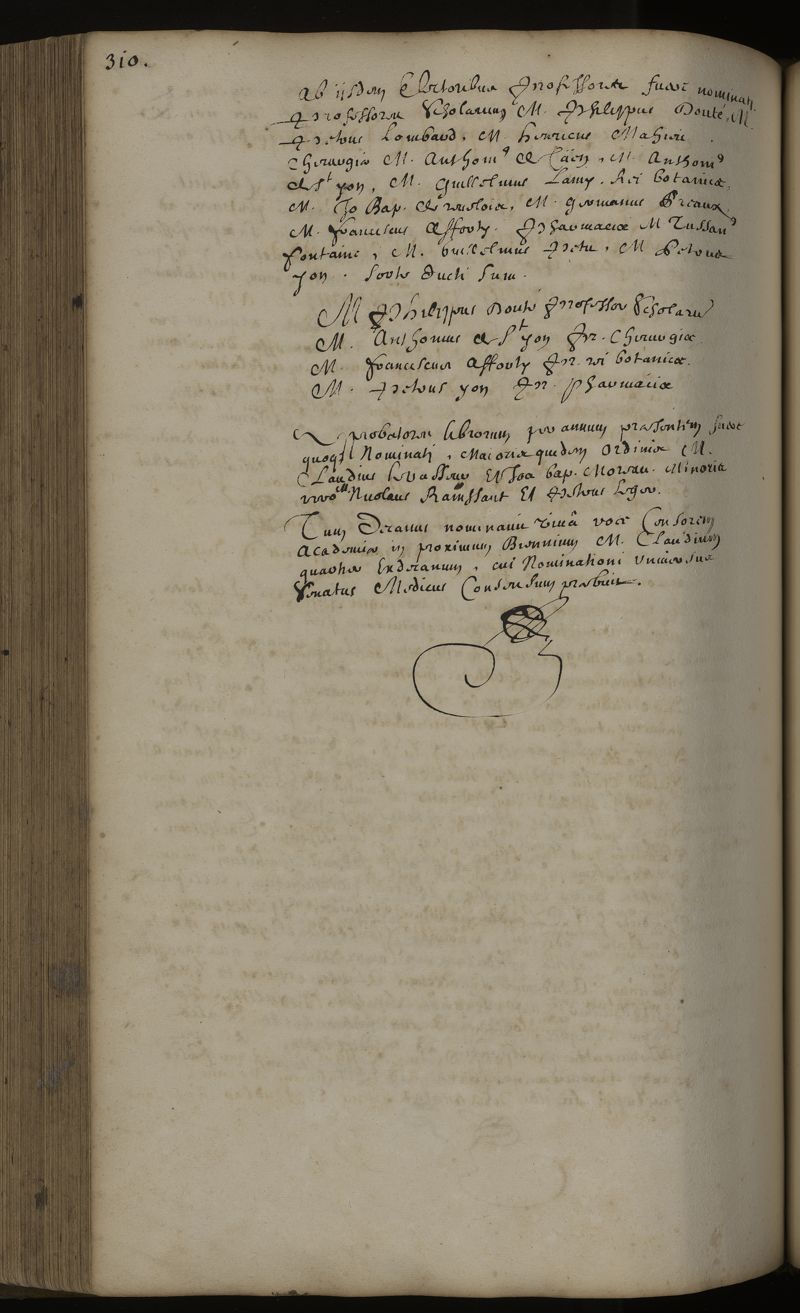 310.
Ab iisdem Electoribus Professores fuere nominati
Professores Scholarum M. Philippus Douté, M.
Petrus Lombard, M. henricus Mahieu.
Chirurgiæ M. Anthon9 de Caën, M. Anthon9
de St yon, M. Guillelmus Lamy. Rei botanicæ,
M. Jo Bap. de M. Germanus Preaux,
M. franciscus Afforty. Pharmaciæ M Tussan9
fontaine, M. Guillelmus Petit, M Petrus
yon. Sorte Ducti sunt.
M Philippus Douté Professor Scholaru
M. Anthonius de St yon Pr. Chirurgiæ
M. franciscus Afforty Pr. rei botanicæ.
M. Petrus yon Pr. pharmaciæ
Probatores librorum per annum præsentem fuere
quoq Nominati, Maioris quidem Ordinis M.
Claudius et Joa bap. Moreau. Minoris
vero M Nicolaus Rainssant Et Petrus Legier.
Tum Decanus nominavit viva voce Censorem
Academiæ in proximum Biennium M. Claudium
Exdecanum, cui Nominationi Universus
Senatus Medicus Consensum præbuit.